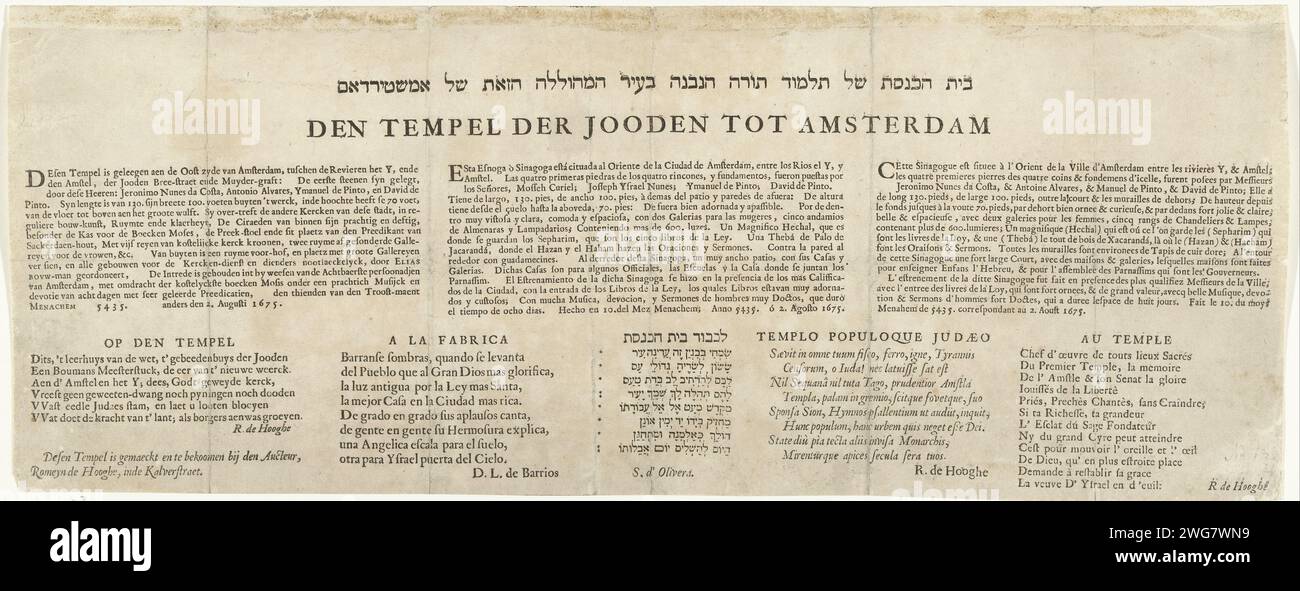 בית הכנסת של תלמוד תורה הנבנה בעיר המהוללה הזאת של אמשטירדאם
DEN TEMPEL DER JOODEN TOT AMSTERDAM
DEsen Tempel is geleegen aen de Oost zyde van Amsterdam, tuschen de Revieren het Y, ende
den Amstel, der Jooden Bree-straet ende Muyder-graft: De eerste steenen syn gelegt,
door dese Heeren: Jeronimo Nunes da Costa, Antonio Alvares, Ymanuel de Pinto, en David de
Pinto. Syn lengte is van 130. sijn breete 100. voeten buyten 'twerck, inde hoochte heeft se 70 voet,
van de vloer tot boven aen het groote wulft. Sy over-treft de andere Kercken van dese stadt, in re-
guliere bouw-kunst, Ruymte ende klaerheyt, De Ciraeden van binnen sijn prachtig en deftig,
besonder de Kas voor de Boecken Moses, de Preek-stoel ende sit plaetz van den Predikant van
Sackerdaen-hout, Met vijf reyen van kostelijcke kerck kroonen, twee ruyme afgesonderde Galle-
reyen voor de vrowen, &c. Van buyten is een ruyme voor-hof, en plaetz met groote Gallereyen
versien, en alle gebouwen voor de Kercken-dienst en dienders nootsaeckelyck, door ELIAS
BOUW-MAN geordonneert, De Intrede is gehouden int by weesen van de Achtbaerste persoonadjen
van Amsterdam, met omdracht der kostelyckste boecken Mosis onder een prachtich Musijck en
devotie van acht dagen met seer geleerde Preedicatien, den thienden van den Troost-maent
MENACHEM 5435. anders den 2. Augusti 1675.
ESta Esnoga ò Sinagoga está cituada al Oriente de la Ciudad de Amsterdam, entre los Rios el Y, y
Amstel. Las quatro primeras piedras de los quatro rincones, y fundamentos, fueron puestas por
los Señores, Mosseh Curiel; Joseph Ysrael Nunes; Ymanuel de Pinto, David de Pinto.
Tiene de largo, 130. pies, de ancho 100. pies, à demas del patio y paredes de afuera: De altura
tiene desde el suelo hasta la aboveda, 70. pies: De fuera bien adornada y apassible. Por de den-
tro muy vistosa y clara, comoda y espaciosa, con dos Galerias para las mugeres, cinco andamios
de Almenaras y Lampadarios; Conteniendo mas de 600. luzes. Un Magnifico Hechal, que es
donde se guardan los Sepharim, que son los cinco libros de la Ley. Una Thebá de Palo de
Jacarandá, donde el Hazan y el Haham hazen las Oraciones y Sermones. Contra la pared al
rededor con guadamecines. Al derredor desta Sinagoga, un muy ancho patio, con sus Casas y
Galerias. Dichas Casas son para algunos Officiales, las Escuelas y la Casa donde se juntan los
Parnassim. El Estrenamiento de la dicha Sinagoga se hizo en la presencia de los mas Califica-
dos de la Ciudad, con la entrada de los Libros de la Ley, los quales Libros estavan muy adorna-
dos y custosos; Con mucha Musica, devocion, y Sermones de hombres muy Doctos, que duró
el tiempo de ocho dias. Hecho en 10. del Mez Menachem; Anno 5435. ó 2. Agosto 1675.
CEtte Sinagogue est situee à l'Orient de la Ville d'Amsterdam entre les rivieres Y, & Amstel;
les quatre premieres pierres des quatre coins & fondemens d'icelle, furent posees par Messieurs
Jeronimo Nunes da Costa, & Antoine Alvares, & Manuel de Pinto, & David de Pinto; Elle a
de long 130. pieds, de large 100. pieds, outre la court & les murailles de dehors; De hauteur depuis
le fonds jusques à la voute 70. pieds, par dehort bien ornée & curieuse, & par dedans fort jolie & claire;
belle & espacieuse, avec deux galeries pour les femmes, cinq rangs de Chandeliers & Lampes;
contenant plus de 600. lumieres; Un magnifique (Hechal) qui est où ce l'on garde les (Sepharim) qui
sont les livres de la Loy, & une (Thebá) le tout de bois de Xacarandá, là où le (Hazan) & (Hacham)
font les Oraisons & Sermons. Toutes les murailles sont environnez de Tapis de cuir doré; Al entour
de cette Sinagogue une fort large Court, avec des maisons & galeries, lesquelles maisons sont faites
pour enseigner Enfans l'Hebreu, & pour l'assemblée des Parnassims qui sont les Gouverneurs.
L'estrenement de la ditte Sinagogue fut fait en presence des plus qualifiez Messieurs de la Ville;
avec l'entree des livres de la Loy, qui sont fort ornees, & de grand valeur, avec belle Musique, devo-
tion & Sermons d'hommes fort Doctes, qui a duree lespace de huit jours. Fait le 10. du moys
Menahem de 5435. correspondant au 2. Aoust 1675.
OP DEN TEMPEL
Dits, 't leerhuys van de wet, t'gebeedenbuys der Jooden
Een Boumans Meesterstuck, de eer van t'nieuwe weerck.
Aen d'Amstel en het Y; dees, Gode geweyde kerck,
Vreest geen geweeten-dwang noch pyningen noch dooden
VVast eedle Judaes stam, en laet u looten bloeyen
VVat doet de kracht van t'lant; als borgers aenwas groeyen.
R. de Hooghe
Desen Tempel is gemaeckt en te bekoomen bij den Aucteur,
Romeyn de Hooghe, inde Kalverstraet.
A LA FABRICA
Barranse sombras, quando se levanta
del Pueblo que al Gran Dios mas glorifica,
la luz antigua por la Ley mas Santa,
la mejor Casa en la Ciudad mas rica.
De grado en grado sus aplausos canta,
de gente en gente su Hermosura explica,
una Angelica escala para el suelo,
otra para Ysrael puerta del Cielo.
D. L. de Barrios
לכבוד בית הכנסת
שמחי בבנין זה עדינה עיר
S. d' Olivera.
TEMPLO POPULOQUE JUDÆO
Sævit in omne tuum fisco, ferro, igne, Tyrannis
Censorum, o Iuda! nec latuisse sat est
Nil Sequanâ nil tuta Tago, prudentior Amstla
Templa, palam in gremio, scitque fovetque, suo
Sponsa Sion, Hymnos psallentium ut audit, inquit,
Hunc populum, hanc urbem quis neget esse Dei.
State diù pia tecta aliis invisa Monarchis;
Mirenturque apices secula sera tuos.
R. de Hooghe
AU TEMPLE
Chef d'œuvre de touts lieux Sacrés
Du Premier Temple, la memoire
De l' Amstle & son Senat la gloire
Jouissés de la Liberté
Priés, Prechés Chantés, sans Craindre;
Si ta Richesse, ta grandeur
L' Esclat dú Sage Fondateur
Ny du grand Cyre peut atteindre
Cest pour mouvoir l' oreille et l' œil
De Dieu, qu' en plus estroite place
Demande â restablir sa grace
La veuve D' Ysrael en d'euil:
R de Hooghe
alamy
Image ID: 2WG7WN9
www.alamy.com